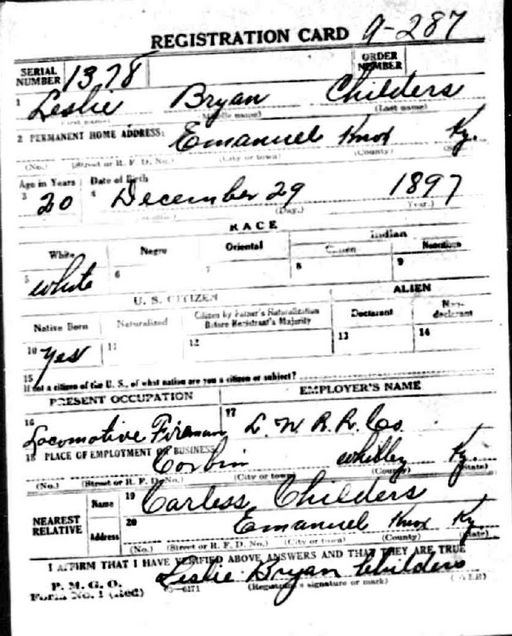 REGISTRATION CARD 9-287
SERIAL NUMBER 1378 ORDER NUMBER
1 Leslie Bryan Childers
(Middle name) (Last name)
2 PERMANENT HOME ADDRESS: Emanuel Knox Ky.
(No.) (Street or R. F. D. No.) (City or town) (County)
Age in Years Date of Birth
3 20 4 December 29 1897
(Day.) (Year.)
RACE
White Negro Oriental Indian
Citizen Noncitizen
5 white 6 7 8 9
U. S. CITIZEN ALIEN
Native Born Naturalized Citizen by Father's Naturalization Before Registrant's Majority Declarant Non-declarant
10 Yes 11 12 13 14
15 If not a citizen of the U. S., of what nation are you a citizen or subject?
PRESENT OCCUPATION EMPLOYER'S NAME
16 Locomotive Fireman 17 L. N R. R. Co.
18 PLACE OF EMPLOYMENT OR BUSINESS:
Corbin Whitley Ky.
(No.) (Street or R. F. D. No.) (City or town) (County) (State)
NEAREST RELATIVE
Name 19 Carless Childers
Address 20 Emanuel Knox Ky
(No.) (Street or R. F. D. No.) (City or town) (County) (State)
I AFFIRM THAT I HAVE VERIFIED ABOVE ANSWERS AND THAT THEY ARE TRUE
P. M. G. O.
Form No. 1 (Red) Leslie Bryan Childers
(Registrant's signature or mark) (OVER)